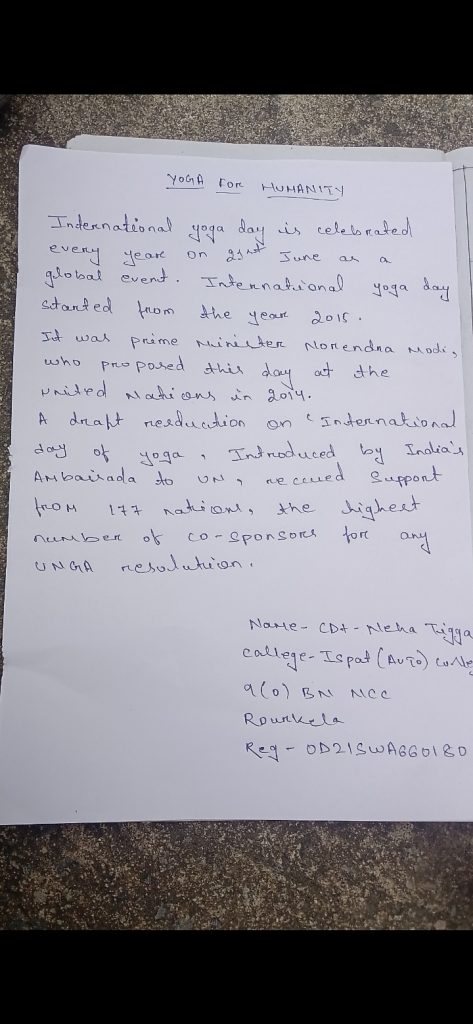 YOGA FOR HUMANITY
International yoga day is celebrated
every year on 21st June as a
global event. International yoga day
started from the year 2015.
It was prime Minister Norendra Modi,
who proposed this day at the
united Nations in 2014.
A draft resduction on 'International
day of yoga, Introduced by India's
Ambairada to UN, receued Support
from 177 nations, the highest
number of co-sponsors for any
UNGA resolution.
Name - CDT - Neha Tigga
College - Ispat (AUTO) Colle
9(O) BN NCC
Rourkela
Reg - OD21SWA660180